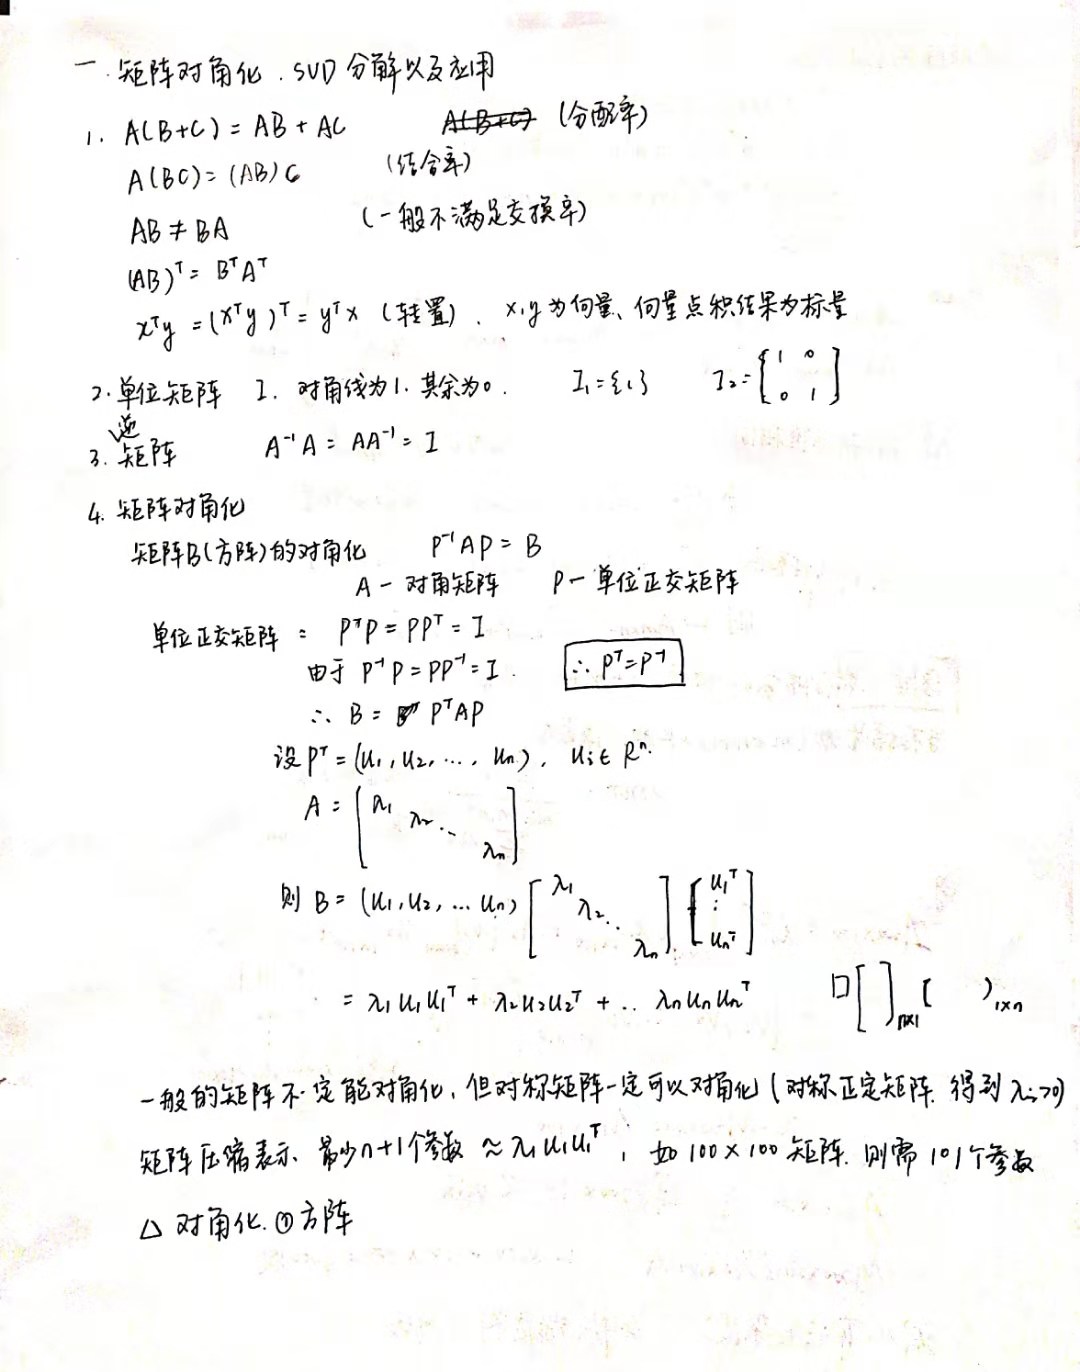 一. 矩阵对角化. SVD 分解以及应用
1. A(B+C) = AB + AC (分配率)
A(BC) = (AB)C (结合率)
AB ≠ BA (一般不满足交换率)
(AB)ᵀ = BᵀAᵀ
xᵀy = (xᵀy)ᵀ = yᵀx (转置). x,y为向量、向量点积结果为标量
2. 单位矩阵 I. 对角线为1. 其余为0. I₁ = {1} I₂ = [1 0
0 1]
3. 逆矩阵 A⁻¹A = AA⁻¹ = I
4. 矩阵对角化
矩阵B(方阵)的对角化 P⁻¹AP = B
A — 对角矩阵 P — 单位正交矩阵
单位正交矩阵: PᵀP = PPᵀ = I
由于 P⁻¹P = PP⁻¹ = I. ∴ Pᵀ = P⁻¹
∴ B = PᵀAP
设 Pᵀ = (u₁, u₂, ..., uₙ), uᵢ ∈ Rⁿ.
A = [λ₁ λ₂ ... λₙ]
则 B = (u₁, u₂, ... uₙ) [λ₁ λ₂ ... λₙ] [u₁ᵀ ⋮ uₙᵀ]
= λ₁u₁u₁ᵀ + λ₂u₂u₂ᵀ + .. λₙuₙuₙᵀ 口[ ]ₙₓ₁ [ )₁ₓₙ
一般的矩阵不一定能对角化, 但对称矩阵一定可以对角化 (对称正定矩阵. 得到 λᵢ>0)
矩阵压缩表示、最少n+1个参数 ≈ λ₁u₁u₁ᵀ, 如100×100矩阵. 则需101个参数
△ 对角化. ① 方阵